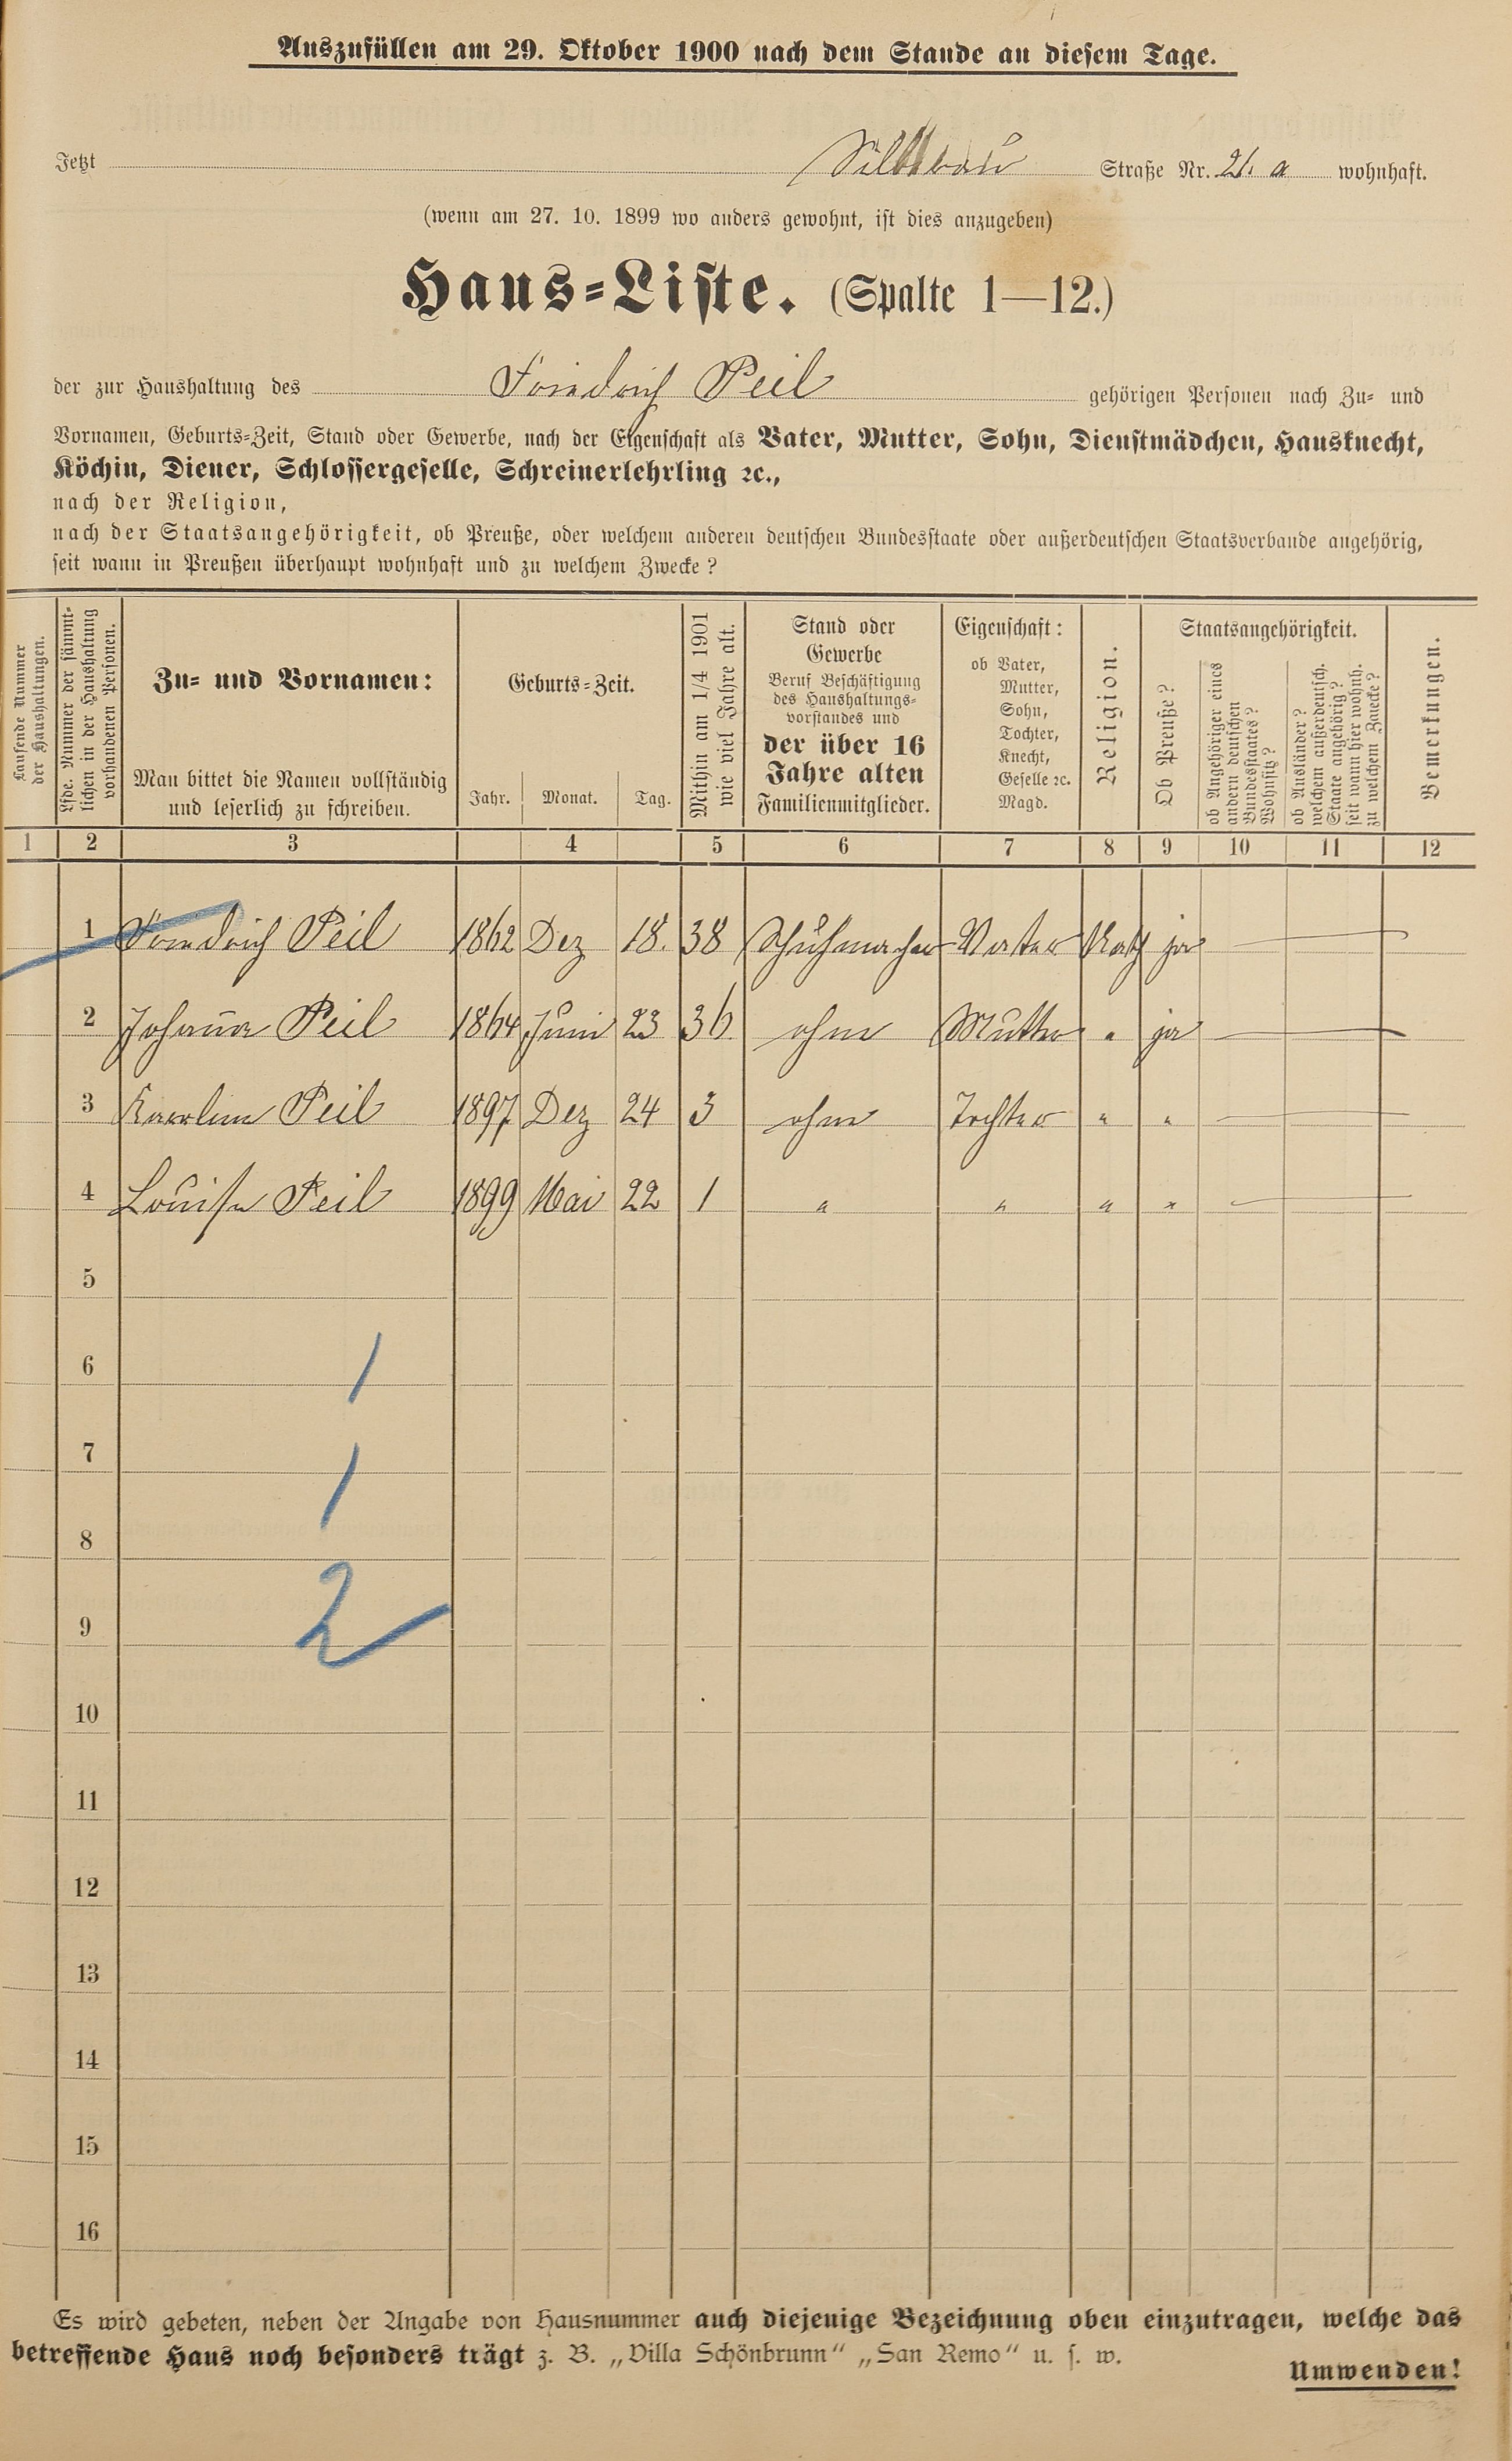 Auszufüllen am 29. Oktober 1900 nach dem Stande an diesem Tage.
Jetzt Straße Nr. 21. a wohnhaft.
(wenn am 27. 10. 1899 wo anders gewohnt, ist dies anzugeben)
Haus-Liste. (Spalte 1—12.)
der zur Haushaltung des Friedrich Peil gehörigen Personen nach Zu- und
Vornamen, Geburts-Zeit, Stand oder Gewerbe, nach der Eigenschaft als Vater, Mutter, Sohn, Dienstmädchen, Hausknecht,
Köchin, Diener, Schlossergeselle, Schreinerlehrling ꝛc.,
nach der Religion,
nach der Staatsangehörigkeit, ob Preuße, oder welchem anderen deutschen Bundesstaate oder außerdeutschen Staatsverbande angehörig,
seit wann in Preußen überhaupt wohnhaft und zu welchem Zwecke?
Laufende Nummer
der Haushaltungen.
Lfde. Nummer der sämmt-
lichen in der Haushaltung
vorhandenen Personen.
Zu- und Vornamen:
Man bittet die Namen vollständig
und leserlich zu schreiben.
Geburts-Zeit.
Jahr. Monat. Tag.
Mithin am 1/4 1901
wie viel Jahre alt.
Stand oder
Gewerbe
Beruf Beschäftigung
des Haushaltungs-
vorstandes und
der über 16
Jahre alten
Familienmitglieder.
Eigenschaft:
ob Vater,
Mutter,
Sohn,
Tochter,
Knecht,
Geselle ꝛc.
Magd.
Religion.
Staatsangehörigkeit.
Ob Preuße?
ob Angehöriger eines
andern deutschen
Bundesstaates?
Wohnsitz?
ob Ausländer?
welchem außerdeutsch.
Staate angehörig?
seit wann hier wohnh.
zu welchem Zwecke?
Bemerkungen.
1 2 3 4 5 6 7 8 9 10 11 12
1 Friedrich Peil 1862 Dez 18. 38 Schuhmacher Vater Kath ja —
2 Johanna Peil 1864 Juni 23 36 ohne Mutter " ja —
3 Karoline Peil 1897 Dez 24 3 ohne Tochter " " —
4 Louise Peil 1899 Mai 22 1 " " " " —
5
6 1
7 1
8
9 2
10
11
12
13
14
15
16
Es wird gebeten, neben der Angabe von Hausnummer auch diejenige Bezeichnung oben einzutragen, welche das
betreffende Haus noch besonders trägt z. B. „Villa Schönbrunn“ „San Remo“ u. s. w.
Umwenden!